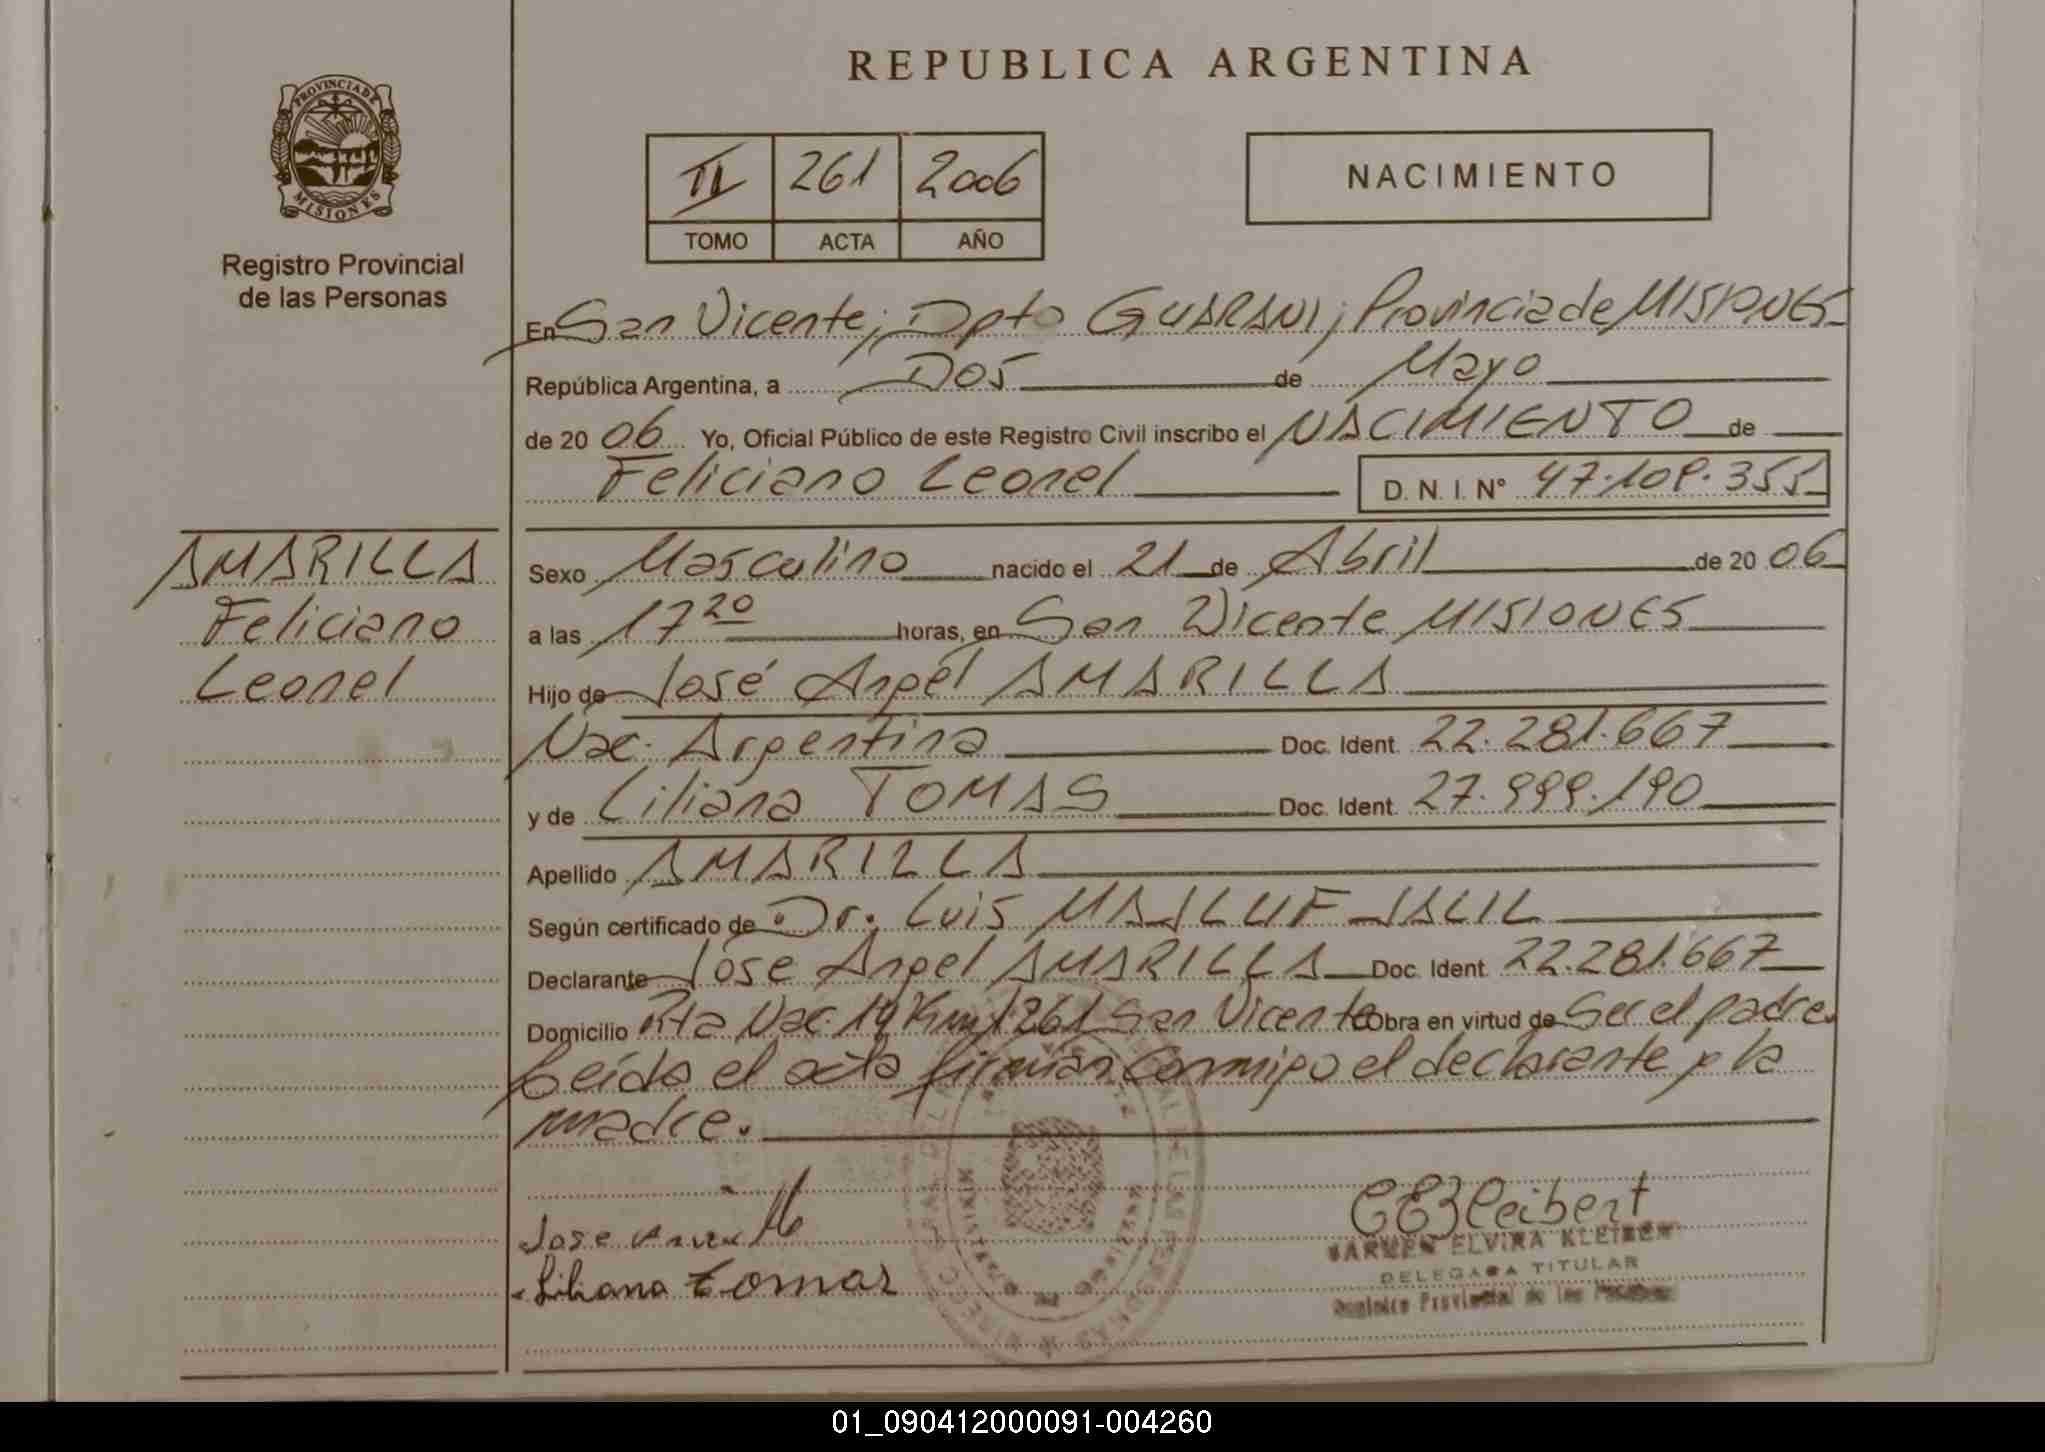 REPUBLICA ARGENTINA
PROVINCIA DE
MISIONES
Registro Provincial
de las Personas
II 261 2006
TOMO ACTA AÑO
NACIMIENTO
En San Vicente; Dpto GUARANI; Provincia de MISIONES
República Argentina, a Dos de Mayo
de 2006 Yo, Oficial Público de este Registro Civil inscribo el NACIMIENTO de
Feliciano Leonel D. N. I. N° 47.109.355
AMARILLA
Feliciano
Leonel
Sexo Masculino nacido el 21 de Abril de 2006
a las 17 20 horas, en San Vicente MISIONES
Hijo de José Angel AMARILLA
Nac. Argentina Doc. Ident. 22.281.667
y de Liliana TOMAS Doc. Ident. 27.999.190
Apellido AMARILLA
Según certificado de Dr. Luis MAJLUF JALIL
Declarante Jose Angel AMARILLA Doc. Ident. 22.281.667
Domicilio Rta Nac 14 Km 1261 San Vicente Obra en virtud de Ser el padre.
Leída el acta firman conmigo el declarante y la
madre.
Jose
Liliana Tomas
CEKleibert
CARMEN ELVIRA
DELEGADA TITULAR
Registro Provincial de las Personas
01_090412000091-004260